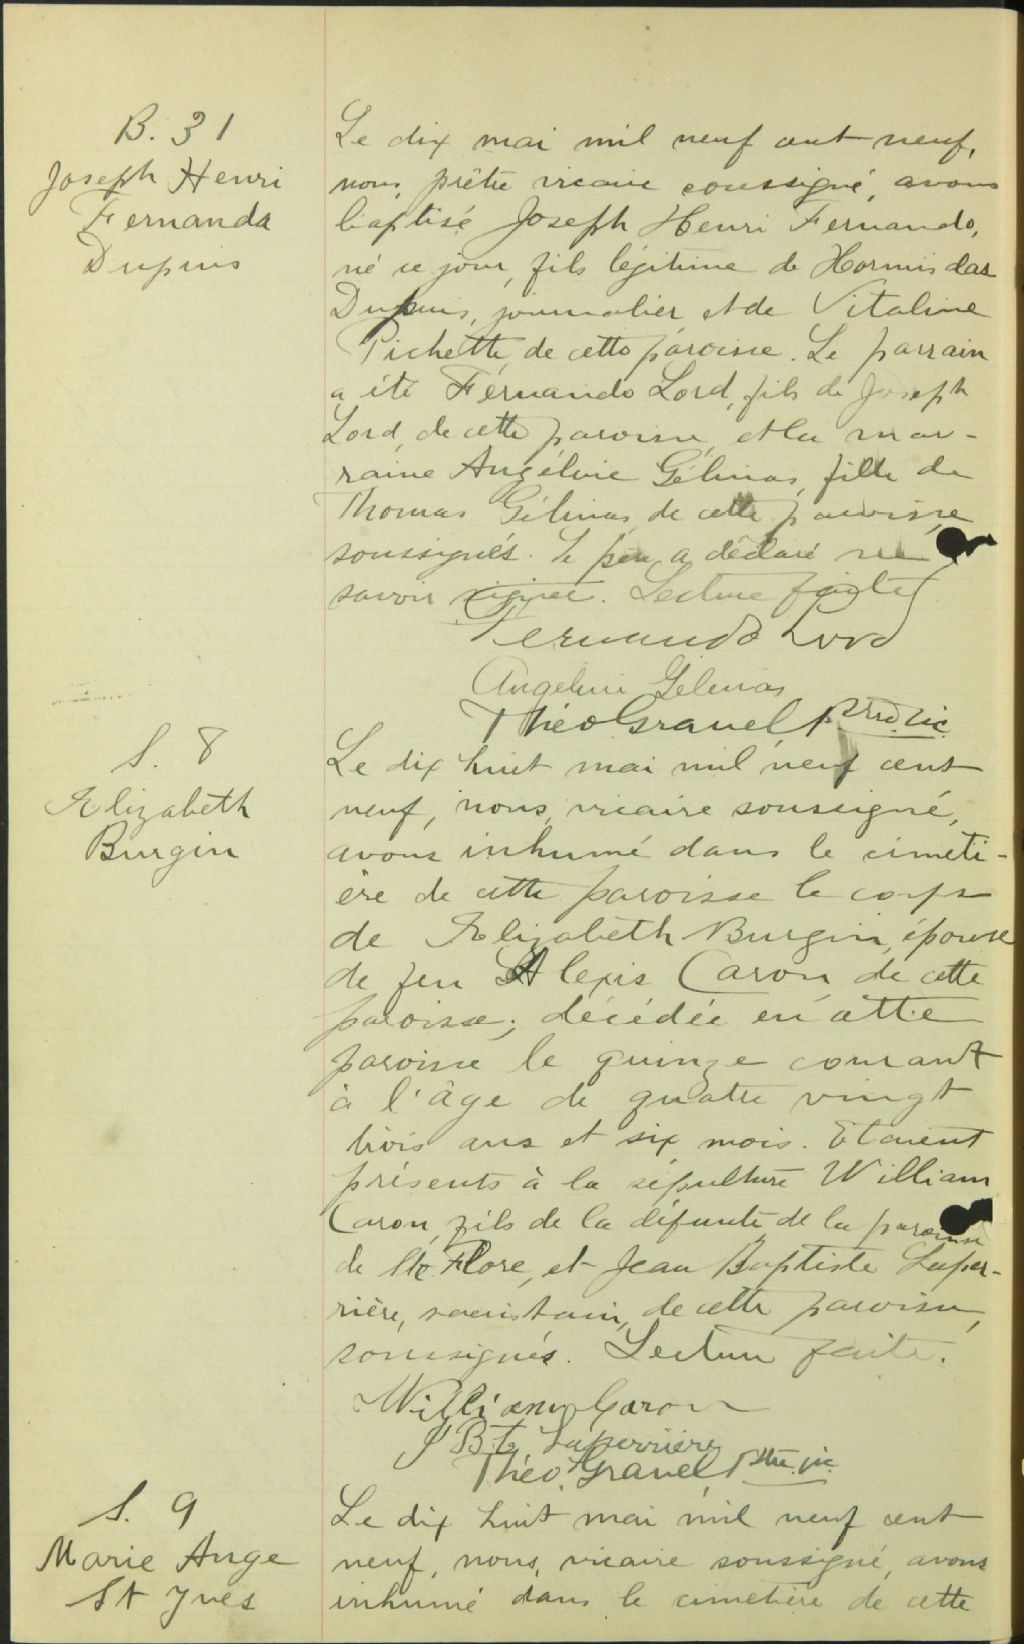 B. 31
Joseph Henri
Fernando
Dupuis
Le dix mai mil neuf cent neuf,
nous, prêtre vicaire soussigné, avons
baptisé Joseph Henri Fernando,
né ce jour, fils légitime de Hormisdas
Dupuis, journalier et de Vitaline
Pichette, de cette paroisse. Le parrain
a été Fernando Lord, fils de Joseph
Lord, de cette paroisse, et la mar-
raine Angéline Gélinas, fille de
Thomas Gélinas, de cette paroisse
soussignés. Le père a déclaré ne
savoir signer. Lecture faite
Fernando Lord
Angeline Gelinas
Théo Gravel, Ptre. vic.
S. 8
Elizabeth
Burgin
Le dix huit mai mil neuf cent
neuf, nous, vicaire soussigné,
avons inhumé dans le cimeti-
ère de cette paroisse le corps
de Elizabeth Burgin, épouse
de feu Alexis Caron, de cette
paroisse, décédée en cette
paroisse le quinze courant
à l'âge de quatre vingt
trois ans et six mois. Etaient
présents à la sépulture William
Caron, fils de la défunte, de la paroisse
de Ste Flore, et Jean Baptiste Laper-
rière, sacristain, de cette paroisse,
soussignés. Lecture faite.
William Caron
J Bte Laperrière
Théo. Gravel, Ptre. vic.
S. 9
Marie Ange
St Yves
Le dix huit mai mil neuf cent
neuf, nous, vicaire soussigné, avons
inhumé dans le cimetière de cette